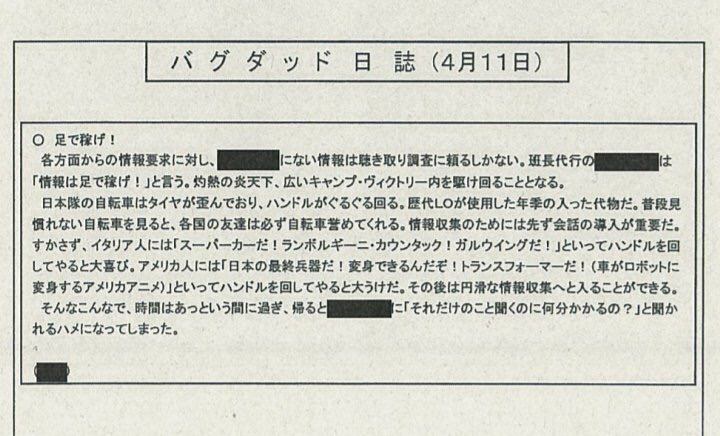 バグダッド日誌（4月11日）
〇 足で稼げ！
各方面からの情報要求に対し、にない情報は聴き取り調査に頼るしかない。班長代行のは
「情報は足で稼げ！」と言う。灼熱の炎天下、広いキャンプ・ヴィクトリー内を駆け回ることとなる。
日本隊の自転車はタイヤが歪んでおり、ハンドルがぐるぐる回る。歴代LOが使用した年季の入った代物だ。普段見
慣れない自転車を見ると、各国の友達は必ず自転車誉めてくれる。情報収集のためには先ず会話の導入が重要だ。
すかさず、イタリア人には「スーパーカーだ！ランボルギーニ・カウンタック！ガルウイングだ！」といってハンドルを回
してやると大喜び。アメリカ人には「日本の最終兵器だ！変身できるんだぞ！トランスフォーマーだ！（車がロボットに
変身するアメリカアニメ）」といってハンドルを回してやると大うけだ。その後は円滑な情報収集へと入ることができる。
そんなこんなで、時間はあっという間に過ぎ、帰るとに「それだけのこと聞くのに何分かかるの？」と聞か
れるハメになってしまった。